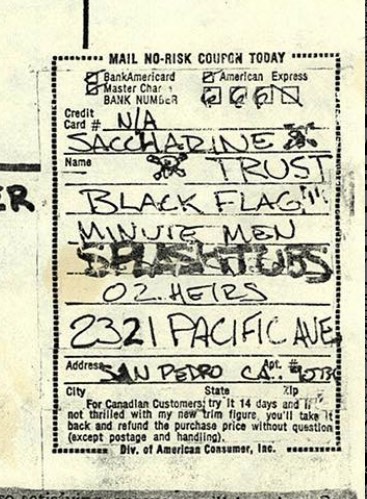 MAIL NO-RISK COUPON TODAY
BankAmericard American Express
Master Char
BANK NUMBER
Credit
Card # N/A
SACCHARINE
Name TRUST
BLACK FLAG
MINUTE MEN
OZ. HEIRS
2321 PACIFIC AVE
Address Apt. #
SAN PEDRO CA.
City State Zip
For Canadian Customers: try it 14 days and if
not thrilled with my new trim figure, you'll take it
back and refund the purchase price without question
(except postage and handling).
Div. of American Consumer, Inc.
ER